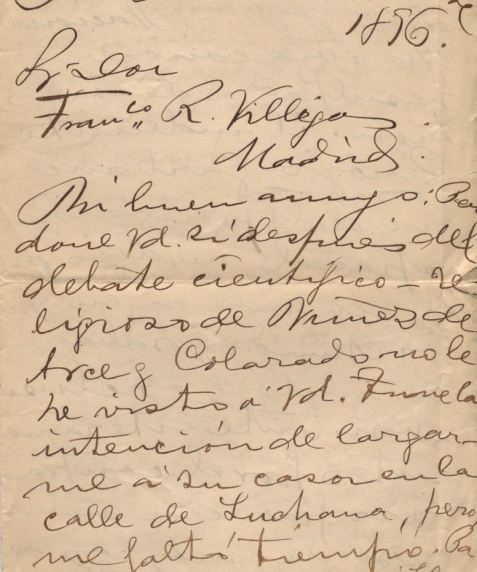 1896.
Señor
Franco R. Villegas.
Madrid.
Mi buen amigo: Per
done Vd. si después del
debate científico-re
ligioso de Nuñez de
Arce y Colorado no le
he visto á Vd. Tuve la
intención de largar-
me a su casa en la
calle de Luchana, pero
me faltó tiempo. Pa